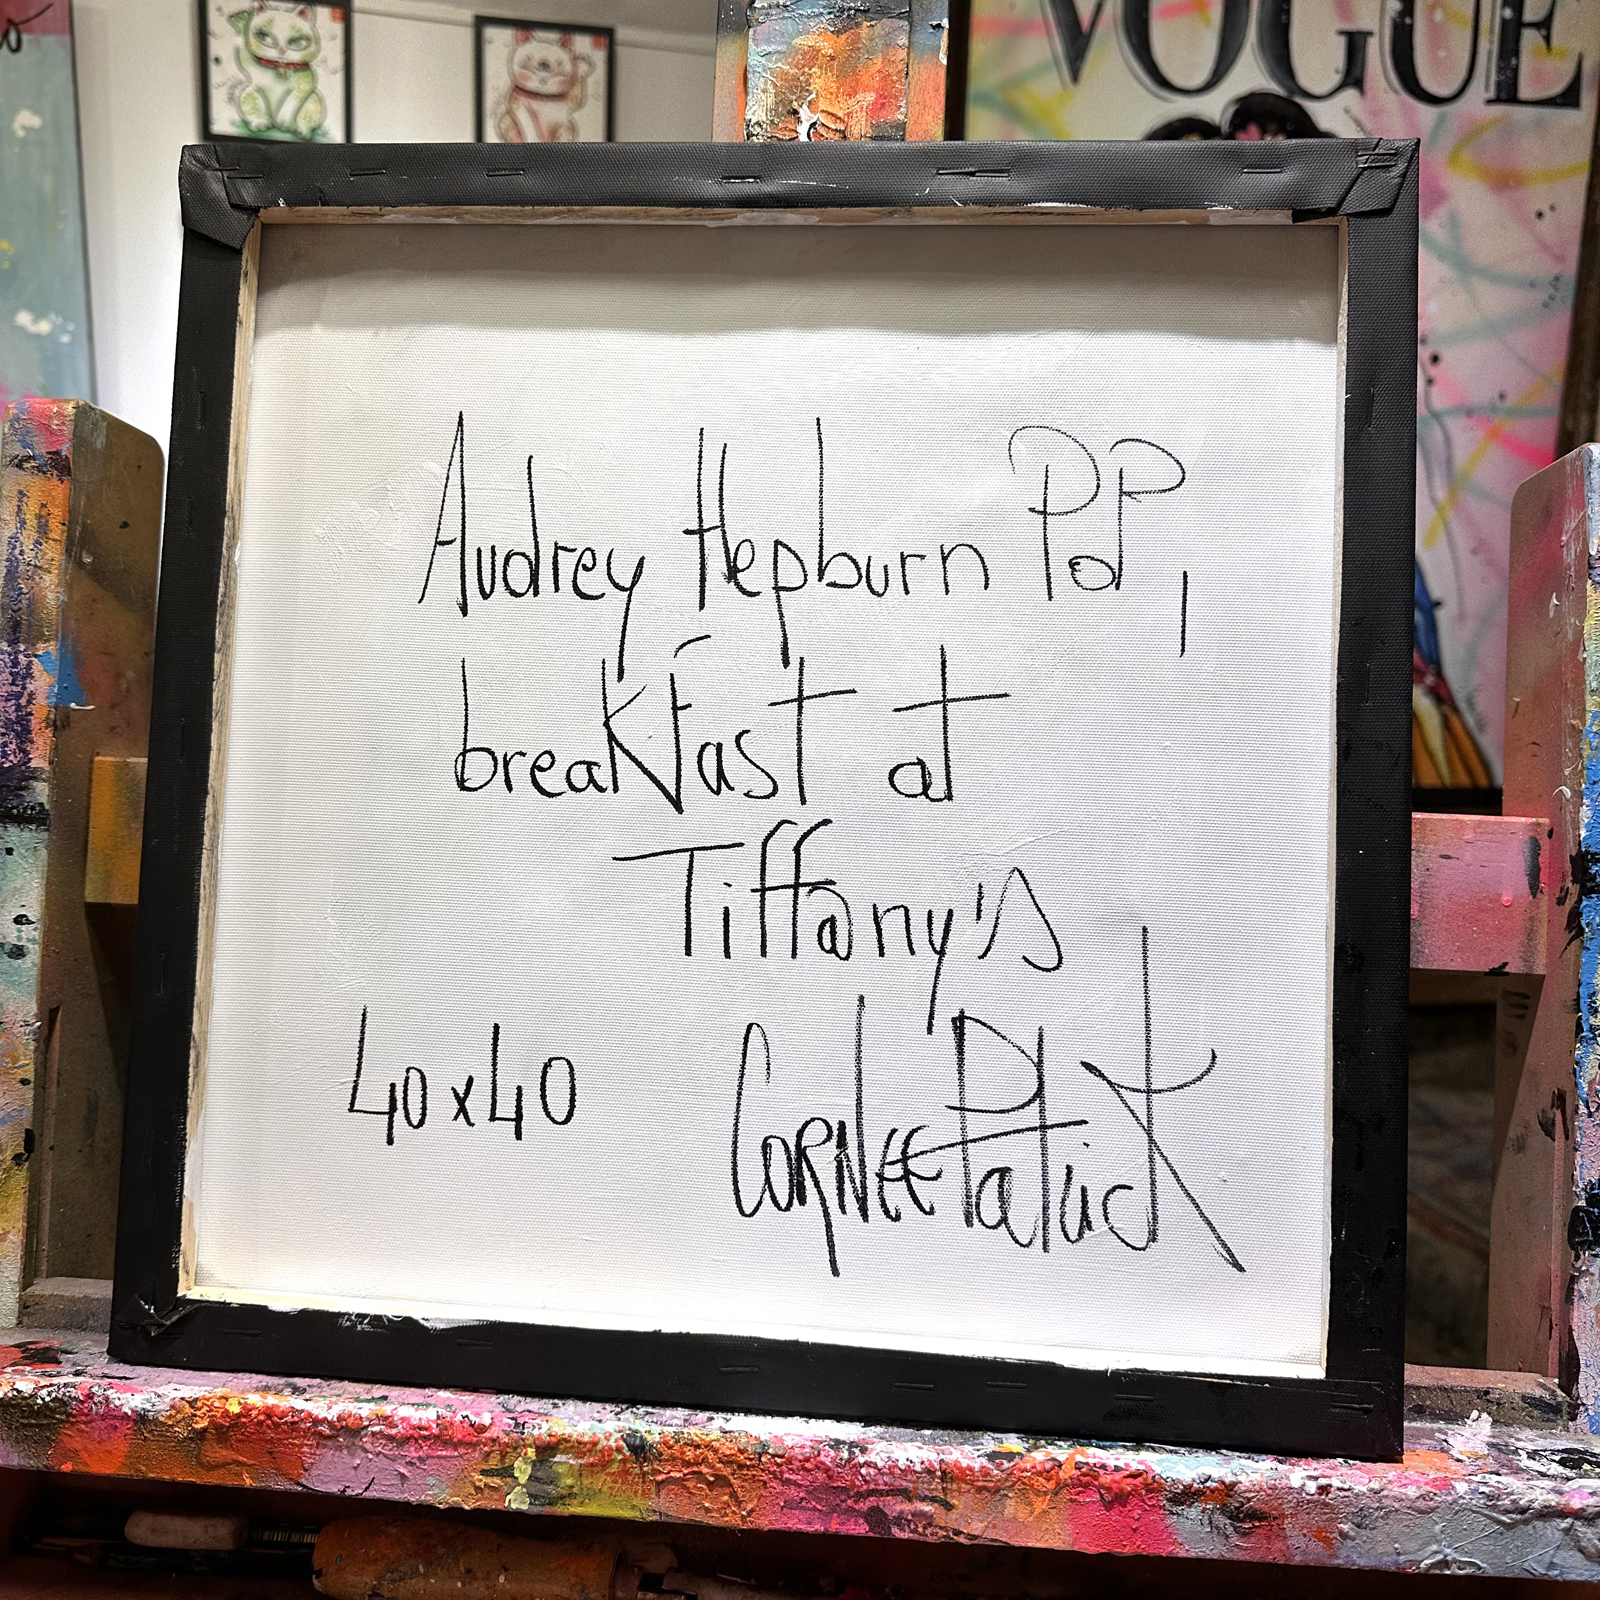 VOGUE
Audrey Hepburn PoP,
breakfast at
Tiffany's
40x40
CORNEE Patrick